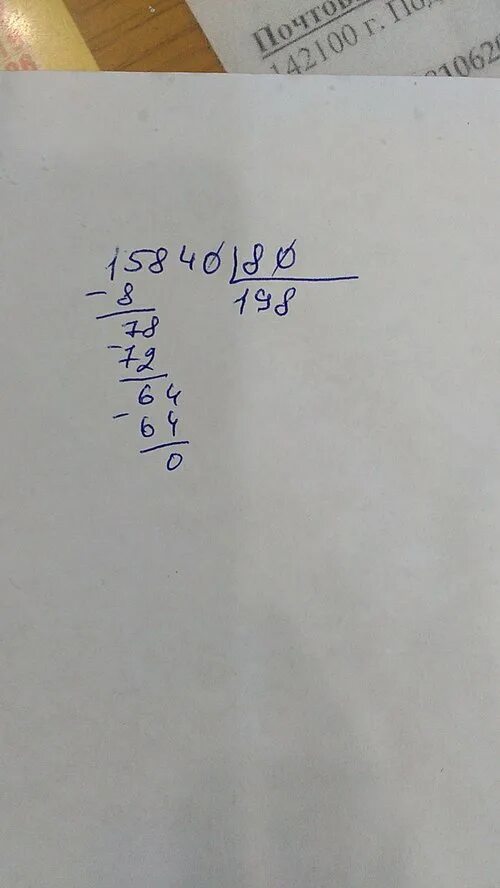 Почтов
142100 г. Под
210620
15840 80
- 8 198
78
- 72
64
- 64
0